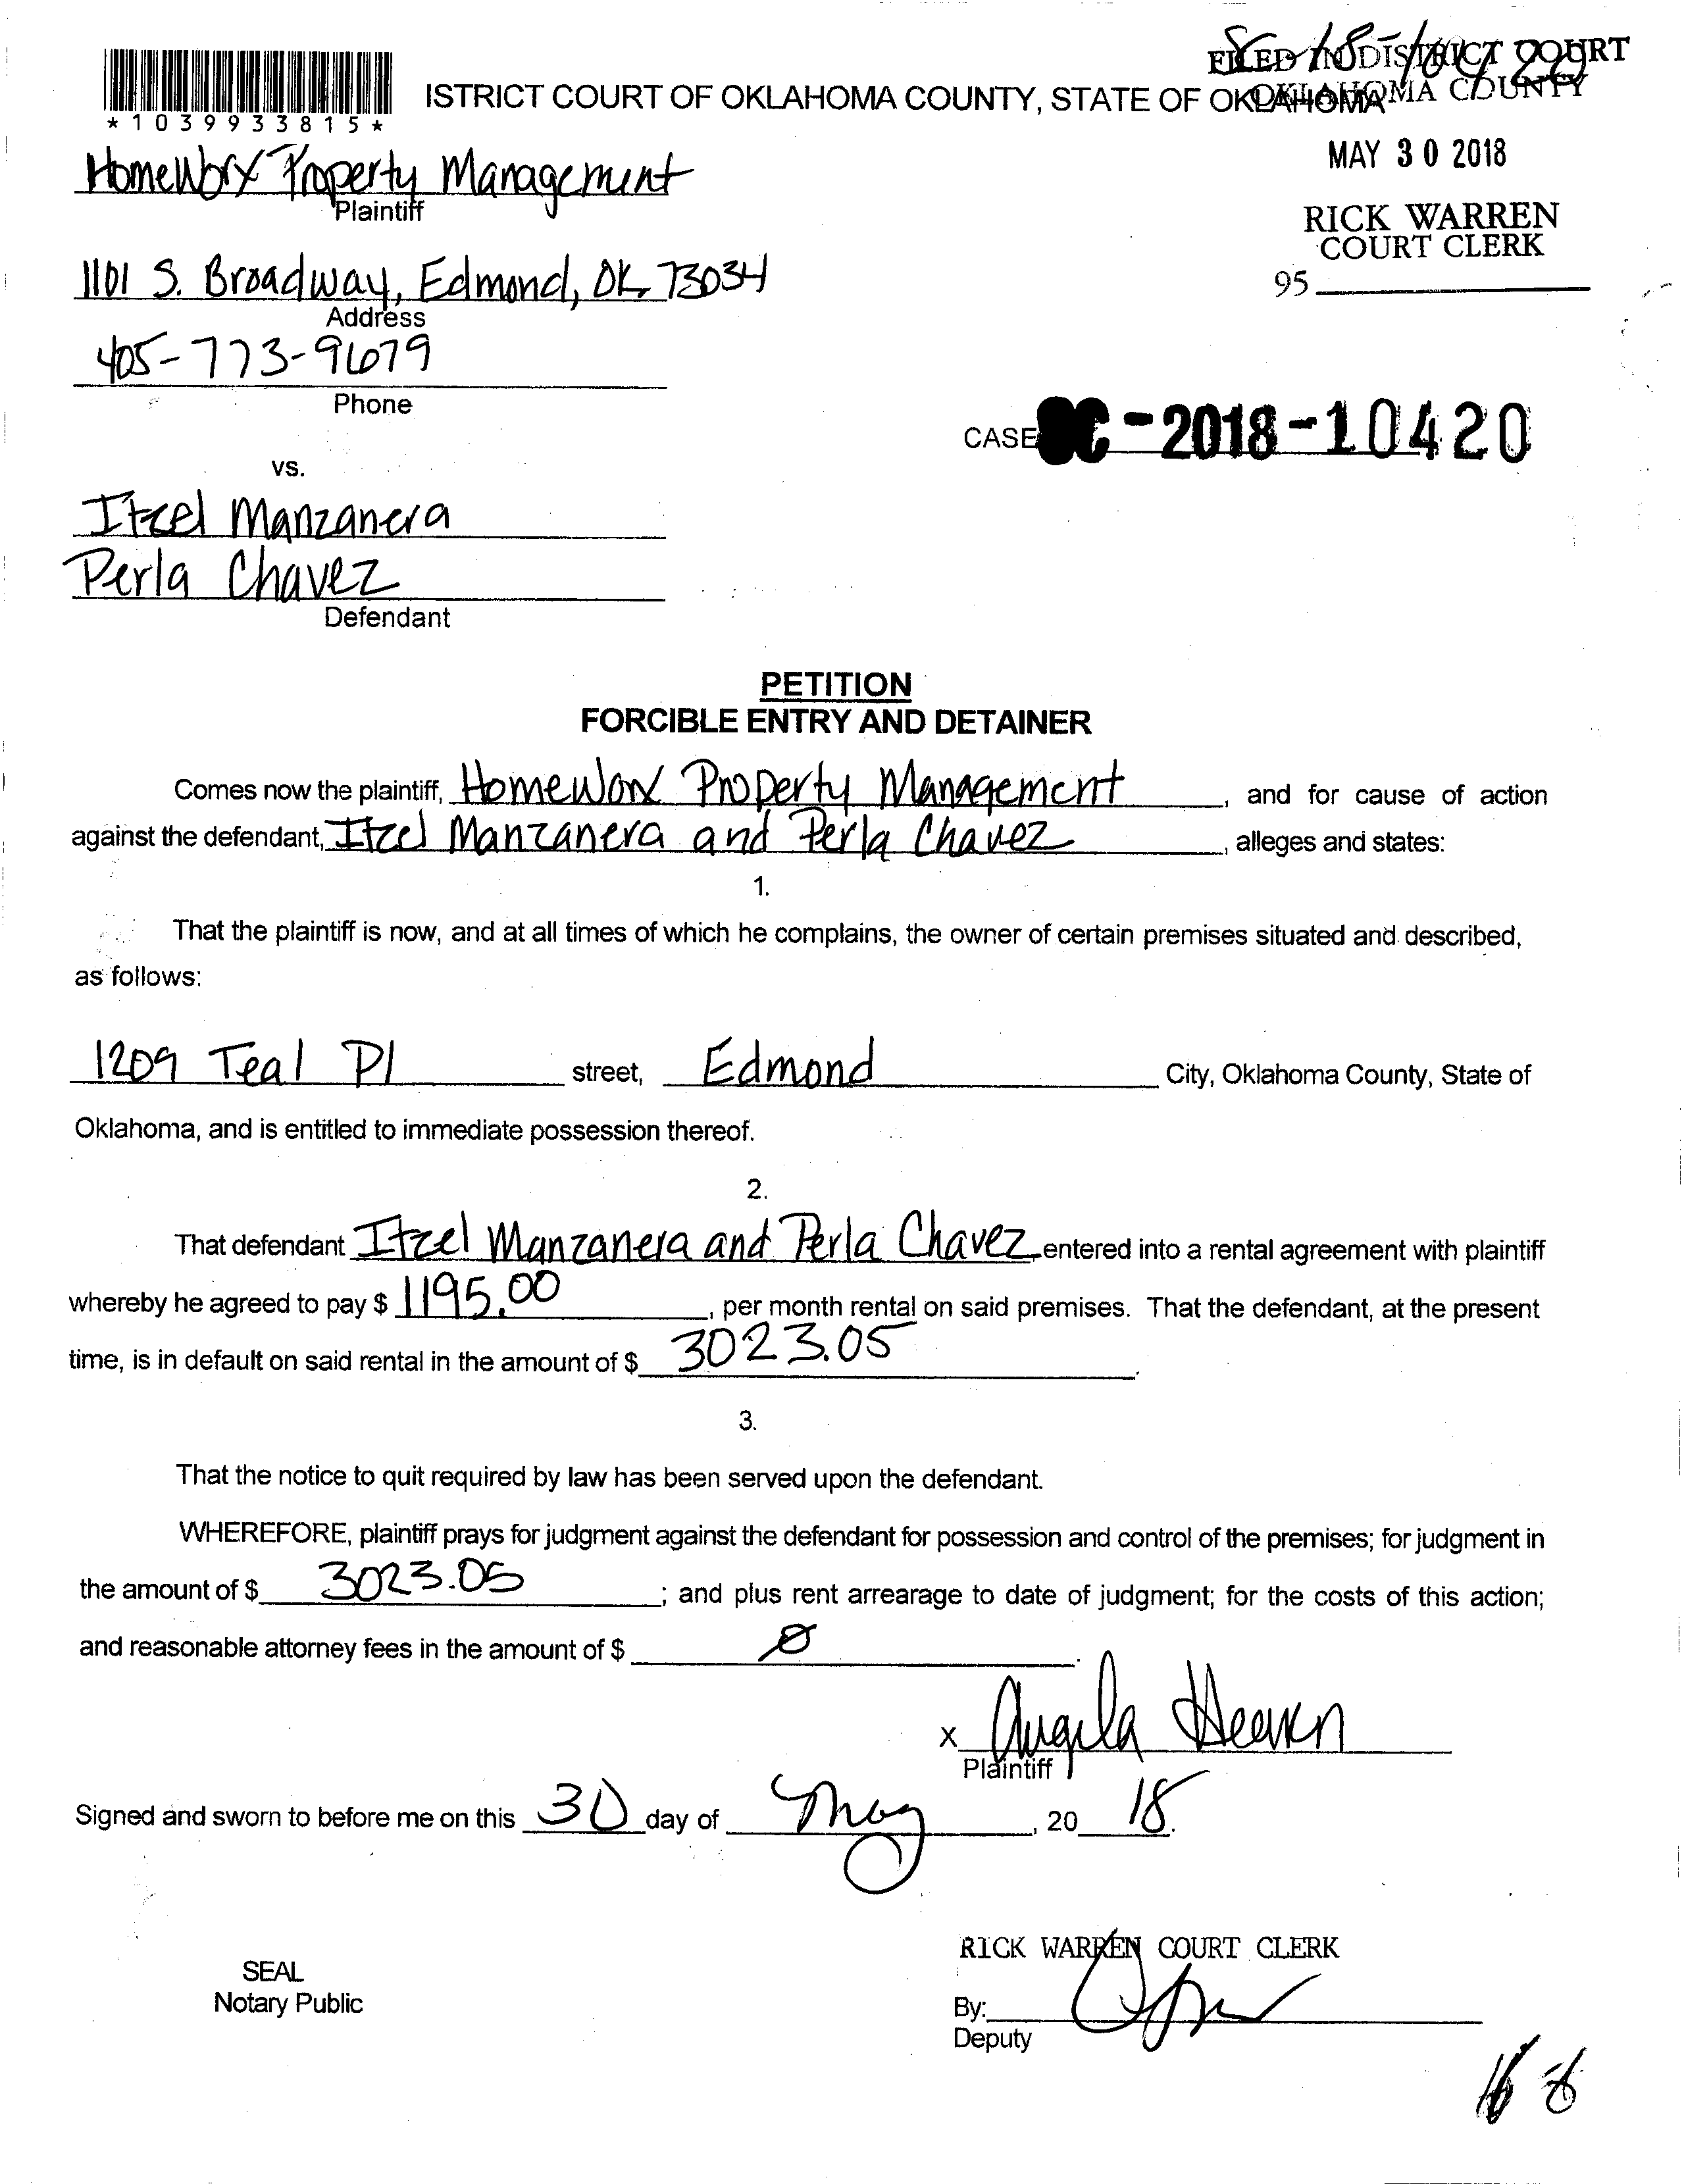 SC-18-10420
FILED IN DISTRICT COURT
OKLAHOMA COUNTY
ISTRICT COURT OF OKLAHOMA COUNTY, STATE OF OKLAHOMA
*1039933815*
MAY 30 2018
HomeWorx Property Management
Plaintiff
RICK WARREN
COURT CLERK
1101 S. Broadway, Edmond, OK 73034
95
Address
405-773-9679
Phone
CASE SC-2018-10420
vs.
Itzel Manzanera
Perla Chavez
Defendant
PETITION
FORCIBLE ENTRY AND DETAINER
Comes now the plaintiff, HomeWorx Property Management, and for cause of action
against the defendant, Itzel Manzanera and Perla Chavez, alleges and states:
1.
That the plaintiff is now, and at all times of which he complains, the owner of certain premises situated and described,
as follows:
1209 Teal Pl street, Edmond City, Oklahoma County, State of
Oklahoma, and is entitled to immediate possession thereof.
2.
That defendant Itzel Manzanera and Perla Chavez entered into a rental agreement with plaintiff
whereby he agreed to pay $ 1195.00, per month rental on said premises. That the defendant, at the present
time, is in default on said rental in the amount of $ 3023.05.
3.
That the notice to quit required by law has been served upon the defendant.
WHEREFORE, plaintiff prays for judgment against the defendant for possession and control of the premises; for judgment in
the amount of $ 3023.05; and plus rent arrearage to date of judgment; for the costs of this action;
and reasonable attorney fees in the amount of $ Ø.
x Angela
Plaintiff
Signed and sworn to before me on this 30 day of May, 20 18.
RICK WARREN COURT CLERK
SEAL
Notary Public
By:
Deputy